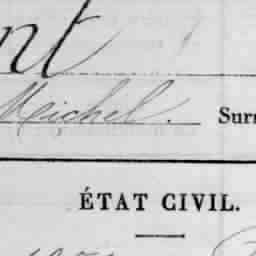 nt
Michel. Surn
ÉTAT CIVIL.